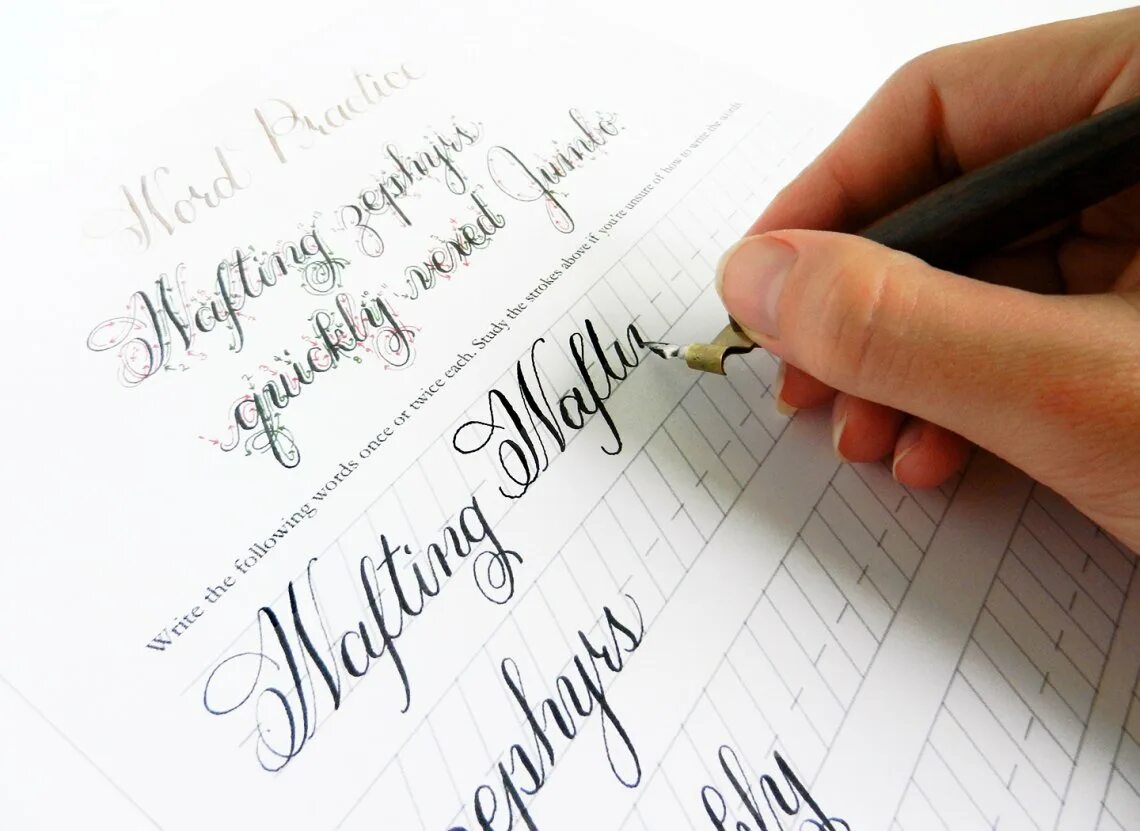 Word Practice
Wafting zephyrs
quickly vexed Jumbo.
Write the following words once or twice each. Study the strokes above if you're unsure of how to write the words
Wafting Waftin
zephyrs